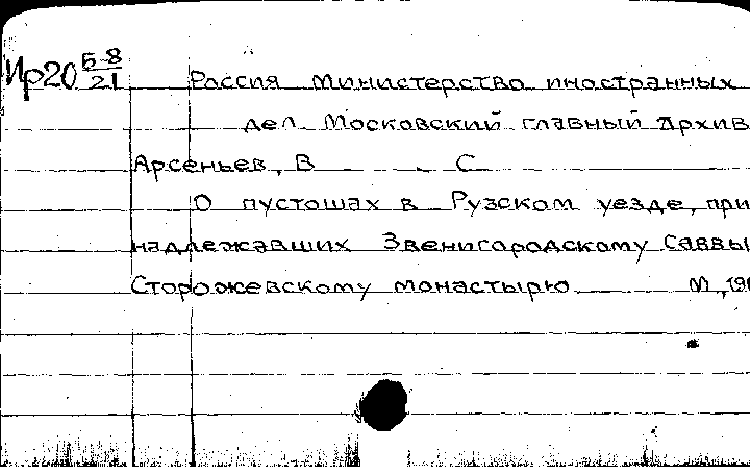 Ир20 Б-8/21
Россия Министерство иностранных
дел. Московский главный Архив
Арсеньев, В С
О пустошах в Рузском уезде, при
надлежавших Звенигородскому Саввы
Сторожевскому монастырю М.,19